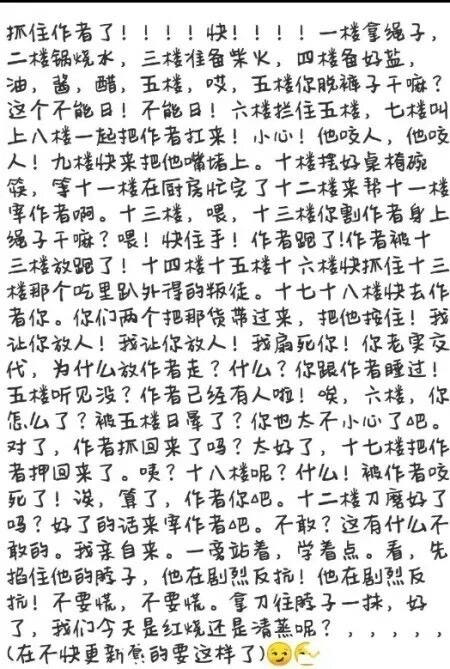 抓住作者了！！！！快！！！！一楼拿绳子，
二楼锅烧水，三楼准备柴火，四楼备好盐，
油，酱，醋，五楼，哎，五楼你脱裤子干嘛？
这个不能日！不能日！六楼拦住五楼，七楼叫
上八楼一起把作者扛来！小心！他咬人，他咬
人！九楼快来把他嘴堵上。十楼摆好桌椅碗
筷，等十一楼在厨房忙完了十二楼来帮十一楼
宰作者啊。十三楼，喂，十三楼你割作者身上
绳子干嘛？喂！快住手！作者跑了!作者被十
三楼放跑了！十四楼十五楼十六楼快抓住十三
楼那个吃里趴外得的叛徒。十七十八楼快去作
者你。你们两个把那货带过来，把他按住！我
让你放人！我让你放人！我扇死你！你老实交
代，为什么放作者走？什么？你跟作者睡过！
五楼听见没？作者已经有人啦！唉，六楼，你
怎么了？被五楼日晕了？你也太不小心了吧。
对了，作者抓回来了吗？太好了，十七楼把作
者押回来了。咦？十八楼呢？什么！被作者咬
死了！诶，算了，作者你吧。十二楼刀磨好了
吗？好了的话来宰作者吧。不敢？这有什么不
敢的。我亲自来。一旁站着，学着点。看，先
掐住他的脖子，他在剧烈反抗！他在剧烈反
抗！不要慌，不要慌。拿刀往脖子一抹，好
了，我们今天是红烧还是清蒸呢？，，，，，
(在不快更新意的要这样了)😏